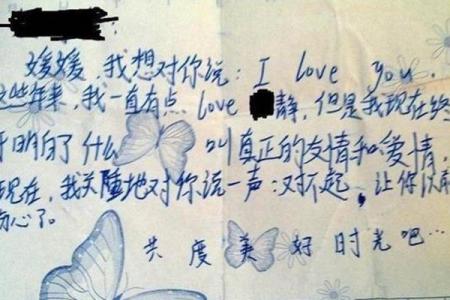 媛媛，我想对你说：I love you.
这些年来，我一直有点 love 静，但是我现在终
于明白了什么 叫真正的友情和爱情，
现在，我关隆地对你说一声：对不起，让你以前
伤心了。
共度美好时光吧…